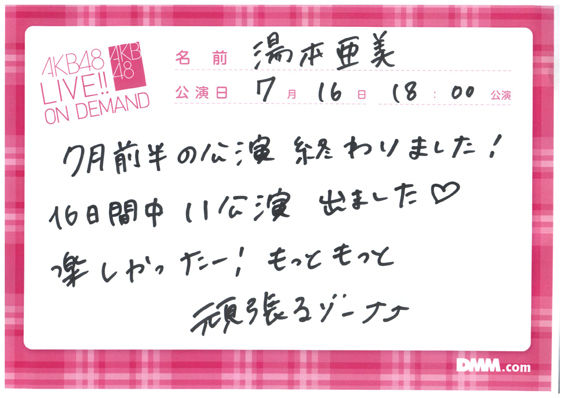 AKB48
LIVE!!
ON DEMAND
AKB
48
名前 湯本亜美
公演日 7月16日 18:00公演
7月前半の公演 終わりました!
16日間中 11公演 出ました♡
楽しかったー! もっともっと
頑張るゾーナ⤴⤴
DMM.com